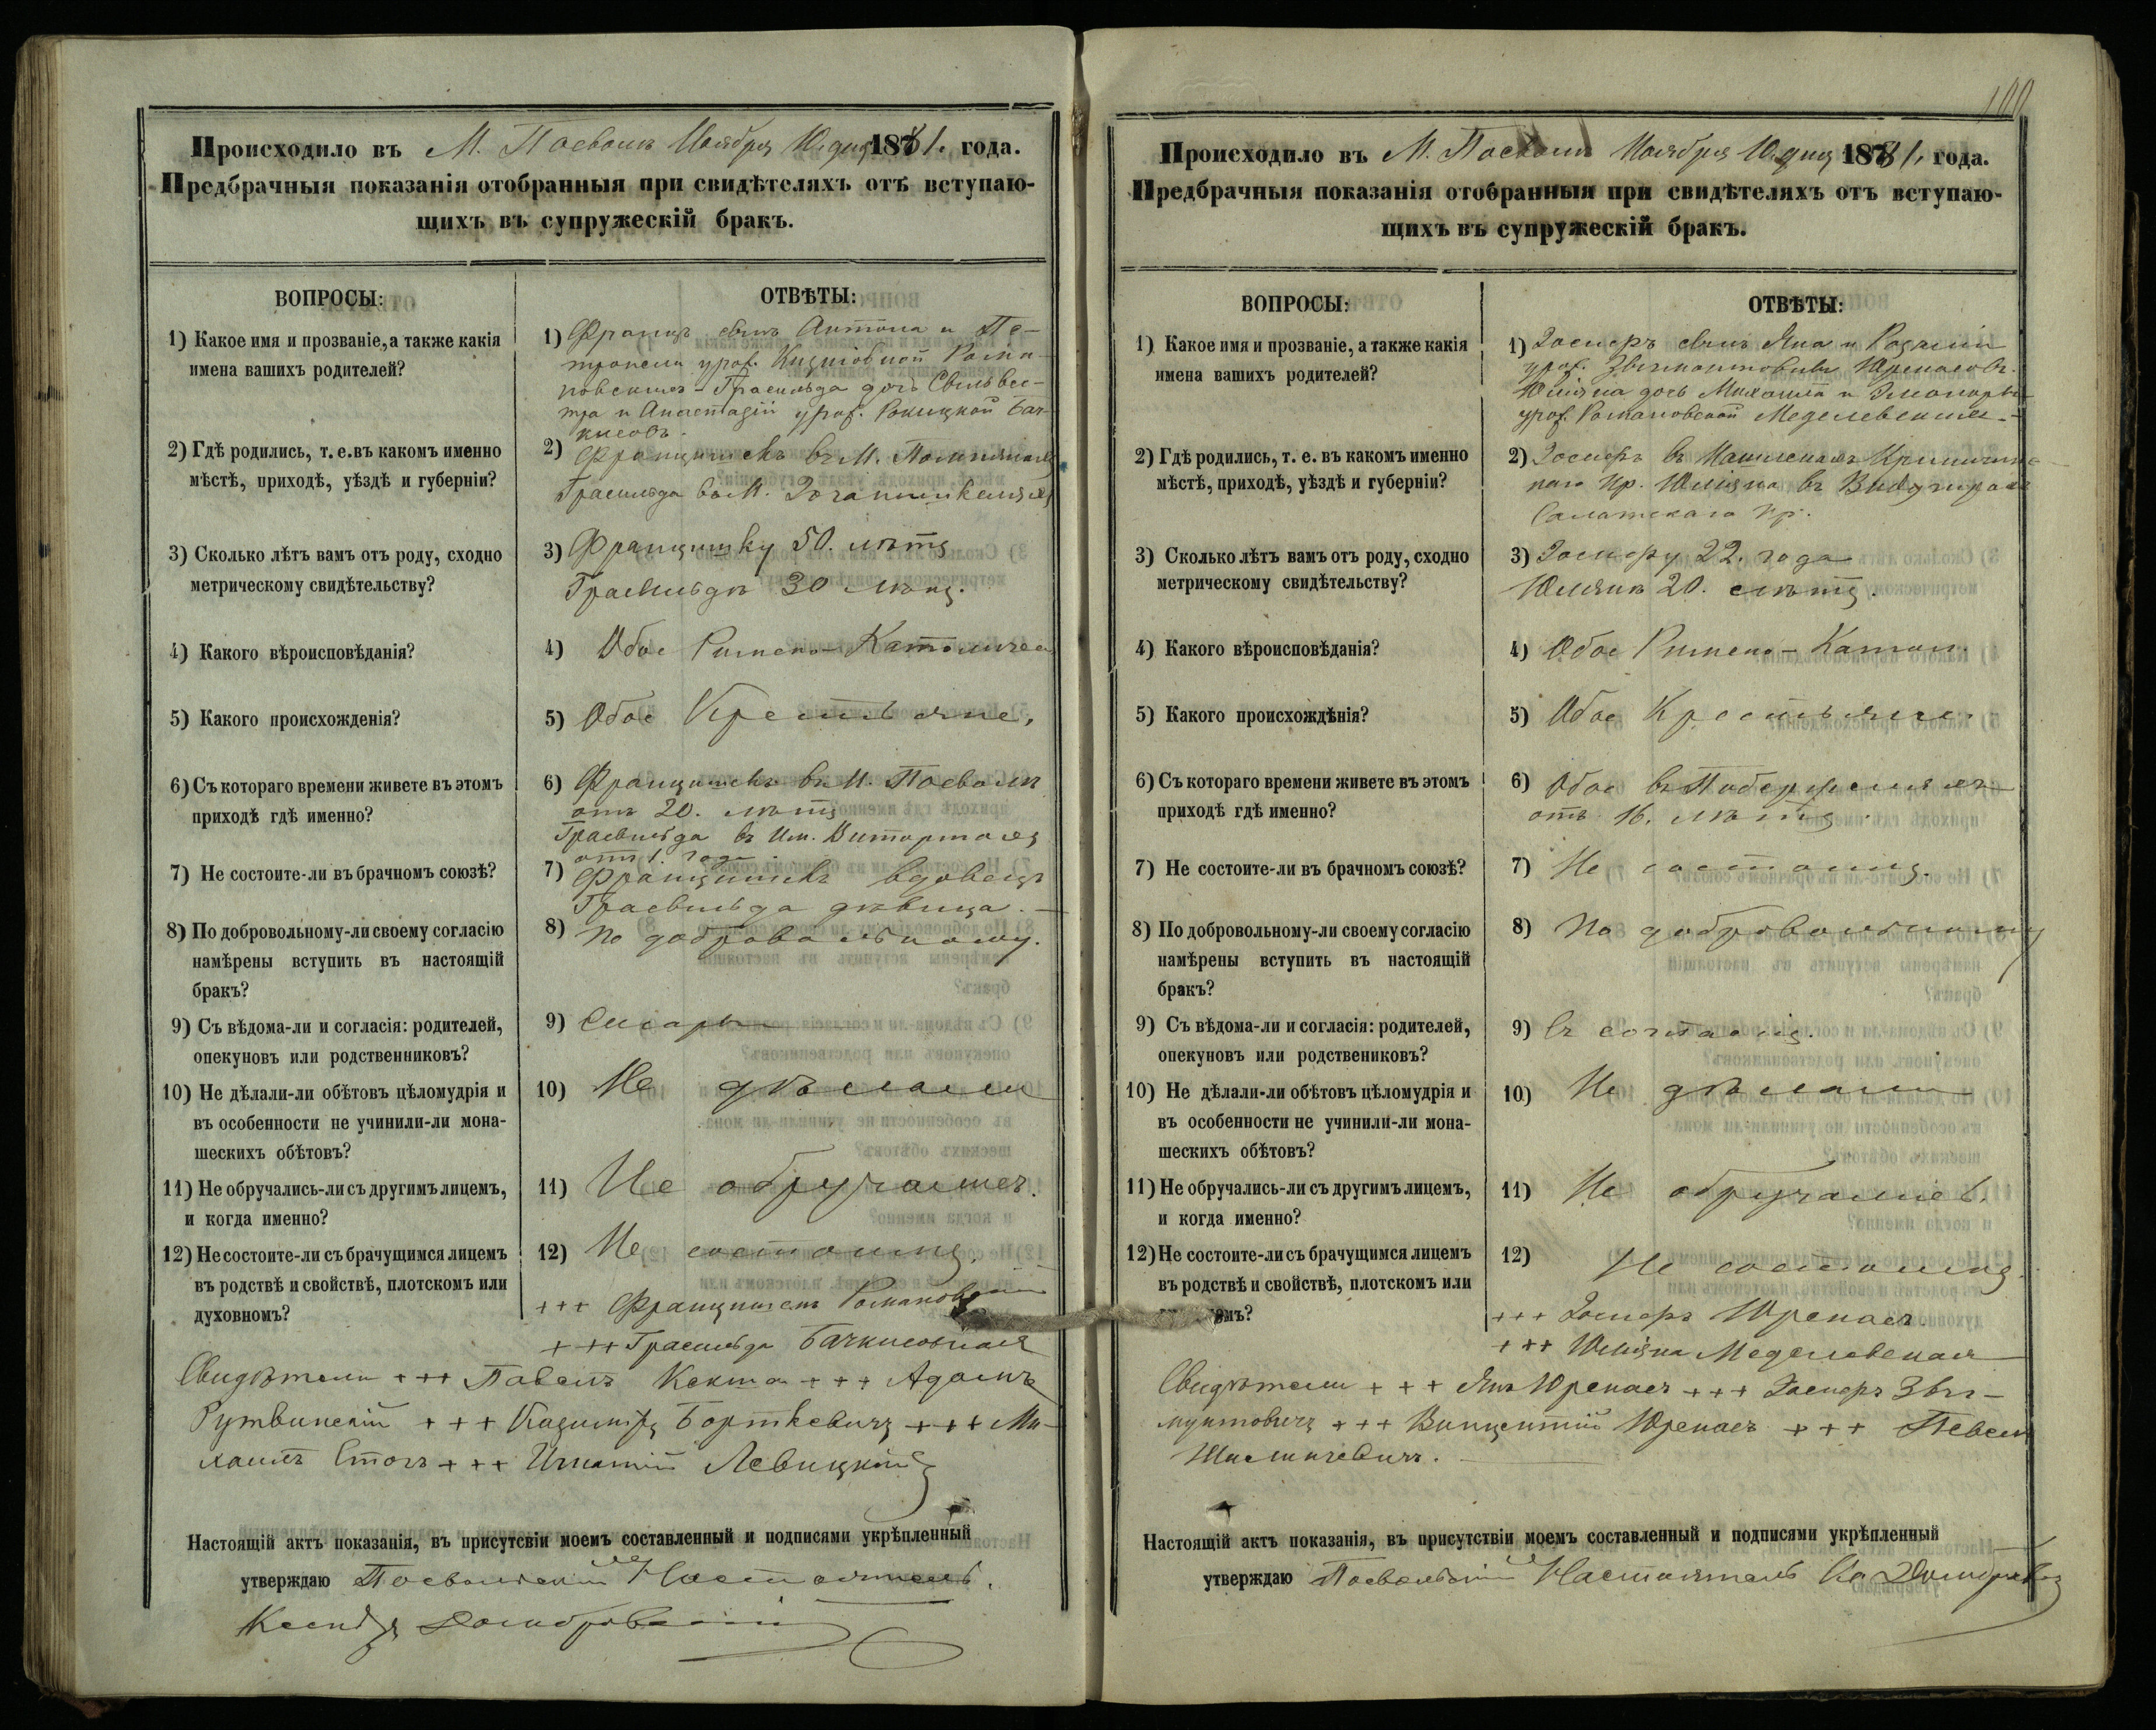 Происходило въ М. Посволь Ноября 10. дня 1881. года.
Предбрачныя показанія отобранныя при свидѣтеляхъ отъ вступаю-
щихъ въ супружескій бракъ.
ВОПРОСЫ:
ОТВѢТЫ:
1) Какое имя и прозваніе, а также какія
имена вашихъ родителей?
1) Францъ сынъ Антона и Пе-
тронели урож. Рома-
новскихъ - Грасильда дочь Сильвес-
тра и Анастазіи урож. Рокицкой Бач-
кисовъ.
2) Гдѣ родились, т. е. въ какомъ именно
мѣстѣ, приходѣ, уѣздѣ и губерніи?
2) Францишекъ въ М.
Грасильда въ М.
3) Сколько лѣтъ вамъ отъ роду, сходно
метрическому свидѣтельству?
3) Францишку 50. лѣтъ
Грасильдѣ 30 лѣтъ.
4) Какого вѣроисповѣданія?
4) Обое Римско-Католичес
5) Какого происхожденія?
5) Обое Крестьяне,
6) Съ котораго времени живете въ этомъ
приходѣ гдѣ именно?
6) Францишекъ въ М. Посволь
отъ 20. лѣтъ
Грасильда въ Им.
отъ 1. года.
7) Не состоите-ли въ брачномъ союзѣ?
7) Францишекъ вдовецъ
Грасильда дѣвица. —
8) По добровольному-ли своему согласію
намѣрены вступить въ настоящій
бракъ?
8) По добровольному.
9) Съ вѣдома-ли и согласія: родителей,
опекуновъ или родственниковъ?
9)
10) Не дѣлали-ли обѣтовъ цѣломудрія и
въ особенности не учинили-ли мона-
шескихъ обѣтовъ?
10) Не дѣлали
11) Не обручались-ли съ другимъ лицемъ,
и когда именно?
11) Не обручались.
12) Не состоите-ли съ брачущимся лицемъ
въ родствѣ и свойствѣ, плотскомъ или
духовномъ?
12) Не состоимъ.
+++ Францишекъ Романовскій
+++ Грасильда Бачкисовная
Свидѣтели +++ Павелъ Кекша +++ Адамъ
Рутвинскій +++ Казиміръ Борткевичъ +++ Ми-
хаилъ Стогъ +++ Игнатій Левицкій
Настоящій актъ показанія, въ присутсвіи моемъ составленный и подписями укрѣпленный
утверждаю Посвольскій Настоятель.
Ксендзъ Домбровскій
100
Происходило въ М. Посволь Ноября 10. дня 1881. года.
Предбрачныя показанія отобранныя при свидѣтеляхъ отъ вступаю-
щихъ въ супружескій бракъ.
ВОПРОСЫ:
ОТВѢТЫ:
1) Какое имя и прозваніе, а также какія
имена вашихъ родителей?
1) Іосифъ сынъ Яна и Розаліи
урож. Юренасовъ.
Юліяна дочь Михаила и Элеоноры
урож. Романовской Меделевскихъ -
2) Гдѣ родились, т. е. въ какомъ именно
мѣстѣ, приходѣ, уѣздѣ и губерніи?
2) Іосифъ въ
Пр. Юліяна въ
Салатскаго Пр.
3) Сколько лѣтъ вамъ отъ роду, сходно
метрическому свидѣтельству?
3) Іосифу 22. года
Юліянѣ 20. лѣтъ.
4) Какого вѣроисповѣданія?
4) Обое Римско-Катол.
5) Какого происхождѣнія?
5) Обое Крестьяне.
6) Съ котораго времени живете въ этомъ
приходѣ гдѣ именно?
6) Обое въ
отъ 16. лѣтъ.
7) Не состоите-ли въ брачномъ союзѣ?
7) Не состоимъ.
8) По добровольному-ли своему согласію
намѣрены вступить въ настоящій
бракъ?
8) По добровольному
9) Съ вѣдома-ли и согласія: родителей,
опекуновъ или родствениковъ?
9) Съ согласія.
10) Не дѣлали-ли обѣтовъ цѣломудрія и
въ особенности не учинили-ли мона-
шескихъ обѣтовъ?
10) Не дѣлали
11) Не обручались-ли съ другимъ лицемъ,
и когда именно?
11) Не обручались.
12) Не состоите-ли съ брачущимся лицемъ
въ родствѣ и свойствѣ, плотскомъ или
омъ?
12) Не состоимъ.
+++ Іосифъ Юренасъ.
+++ Юліяна Меделевская
Свидѣтели +++ Янъ Юренасъ +++ Іосифъ Звы-
мунтовичъ +++ Винцентій Юренасъ +++
Настоящій актъ показанія, въ присутствіи моемъ составленный и подписями укрѣпленный
утверждаю Посвольскій Настоятель Кс Домбровс